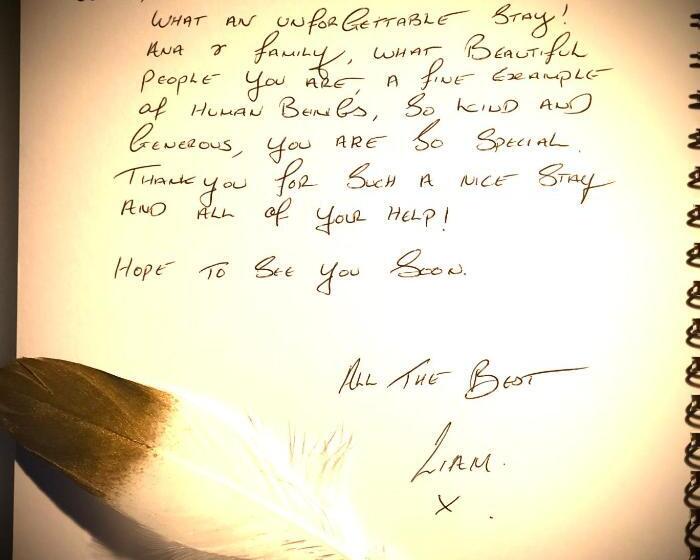 WHAT AN UNFORGETTABLE STAY!
ANA & FAMILY, WHAT BEAUTIFUL
PEOPLE YOU ARE, A FINE EXAMPLE
OF HUMAN BEINGS, SO KIND AND
GENEROUS, YOU ARE SO SPECIAL.
THANK YOU FOR SUCH A NICE STAY
AND ALL OF YOUR HELP!
HOPE TO SEE YOU SOON.
ALL THE BEST
LIAM.
X.